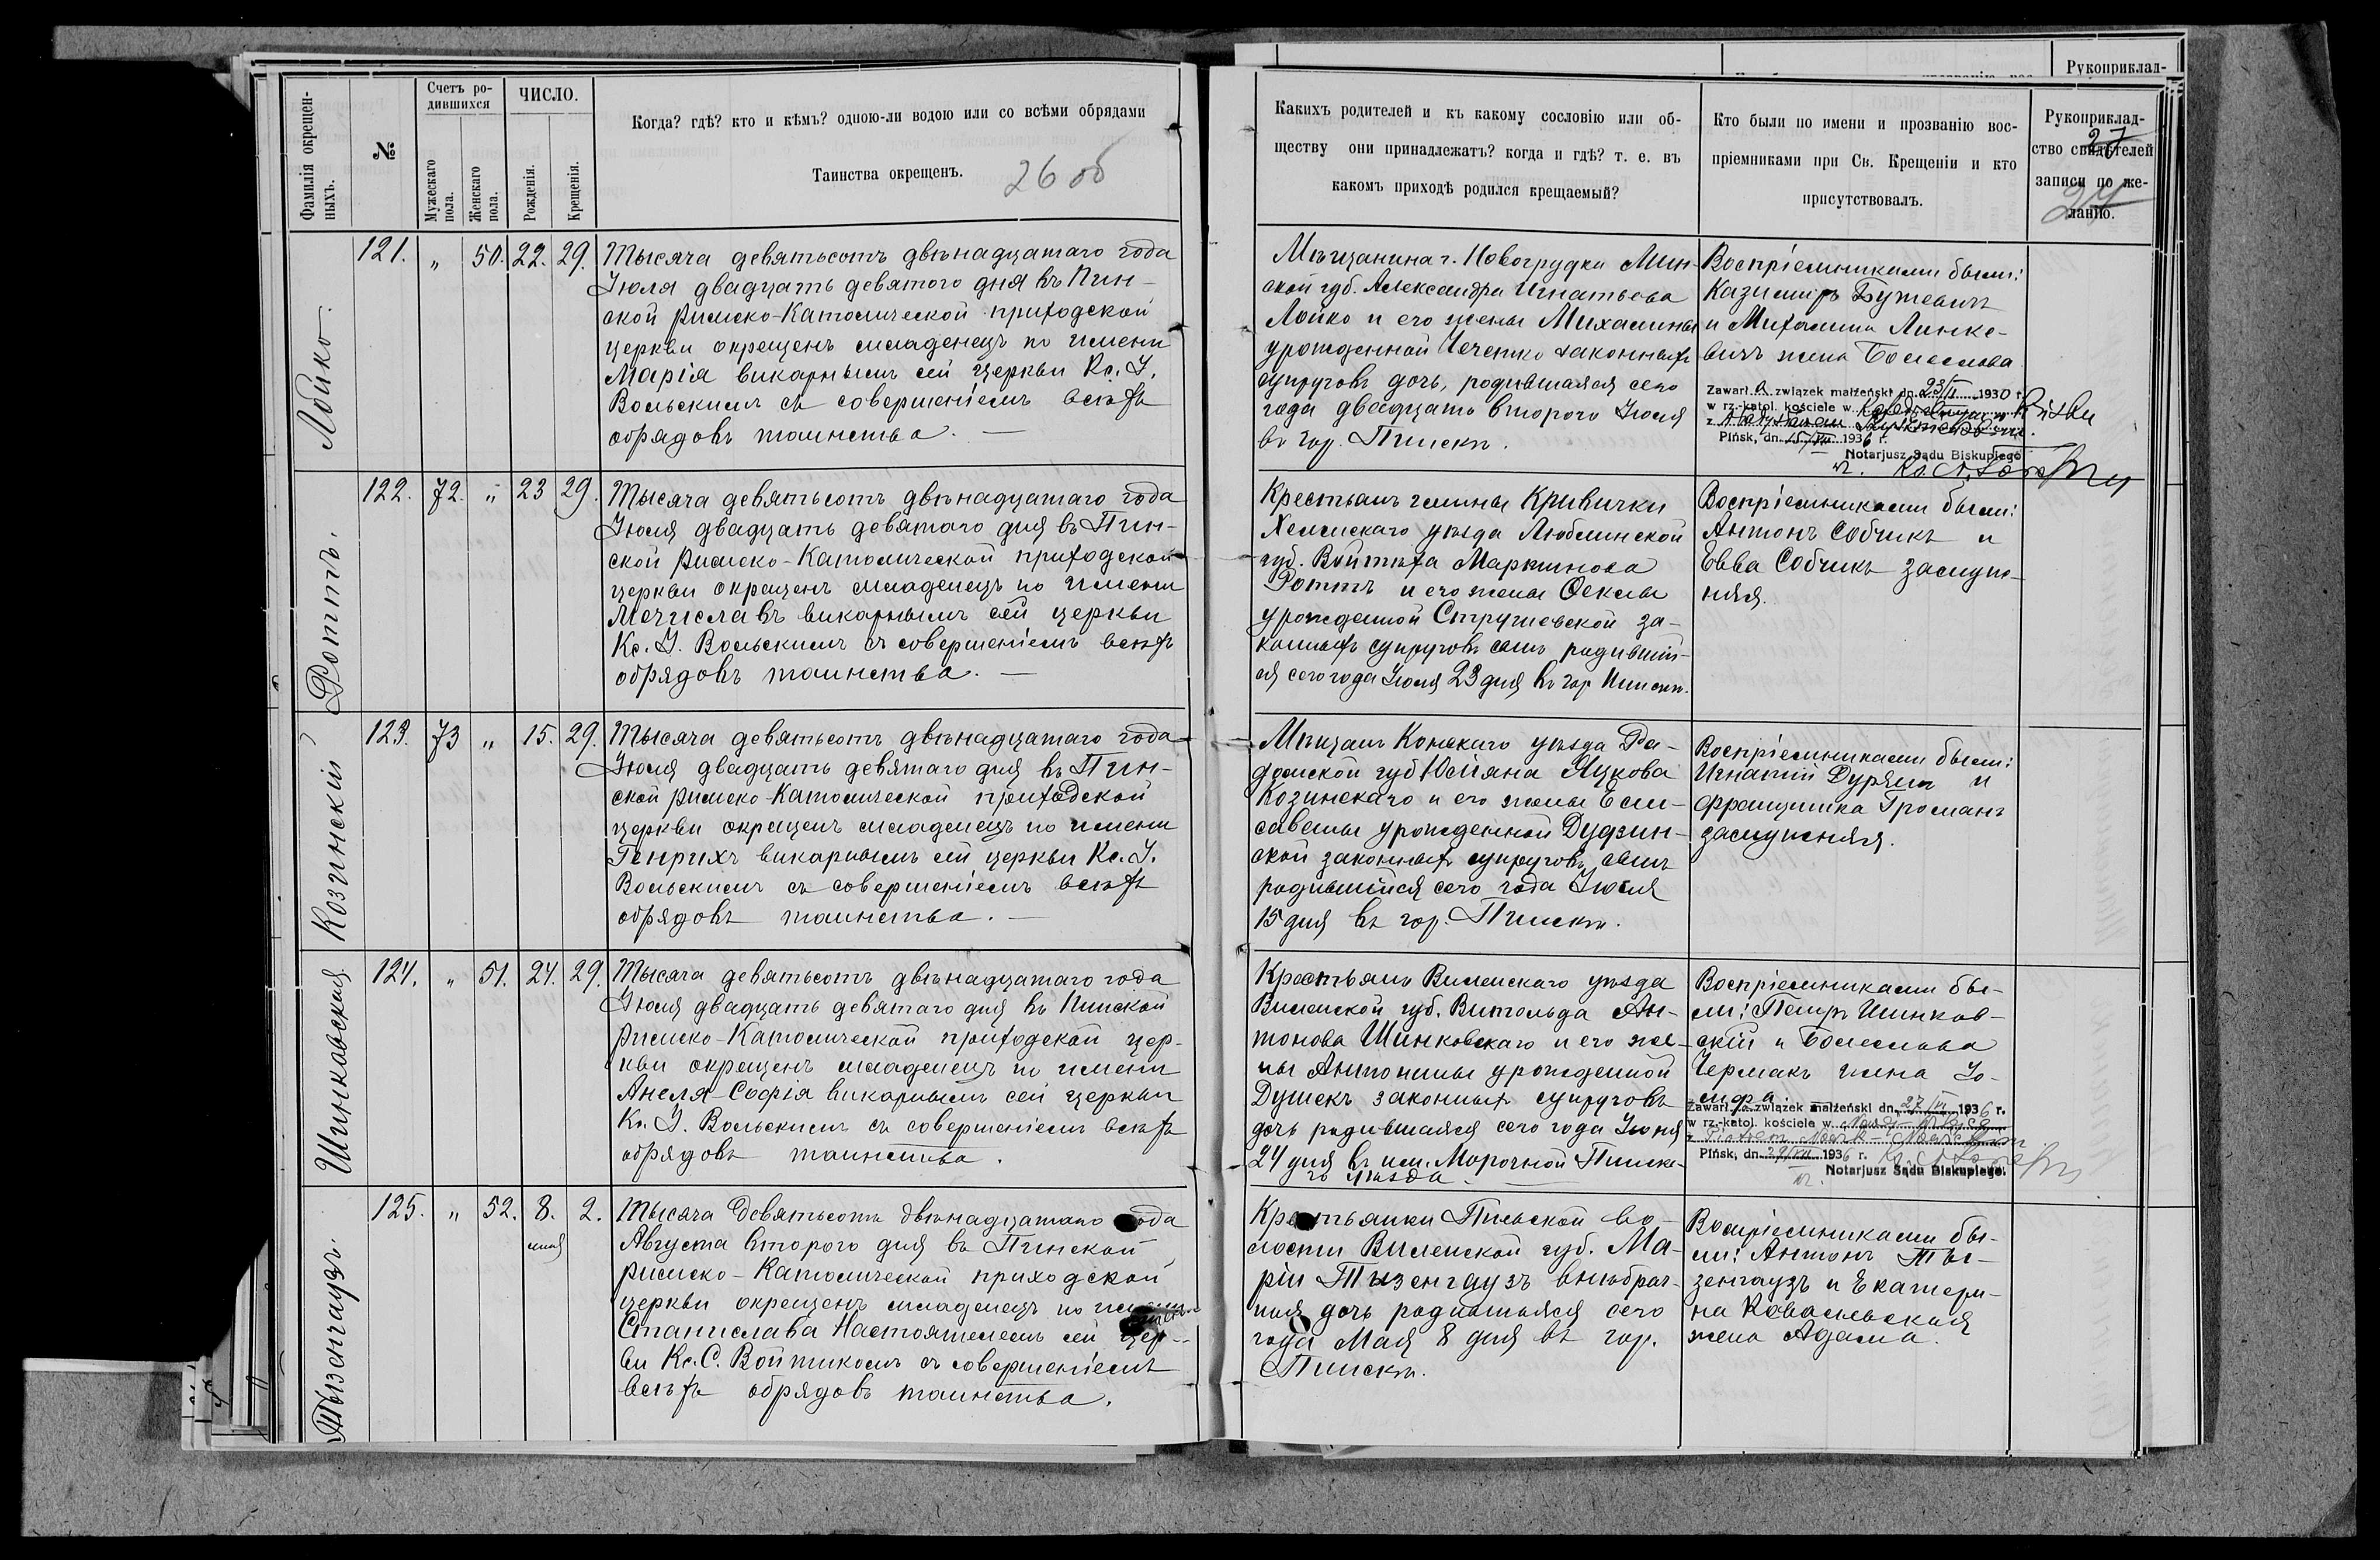 Рукоприклад-
Фамилія окрещен-
ныхъ.
№
Счетъ ро-
дившихся
Мужескаго
пола.
Женскаго
пола.
ЧИСЛО.
Рожденія.
Крещенія.
Когда? гдѣ? кто и кѣмъ? одною-ли водою или со всѣми обрядами
Таинства окрещенъ.
26 об
Какихъ родителей и къ какому сословію или об-
ществу они принадлежатъ? когда и гдѣ? т. е. въ
какомъ приходѣ родился крещаемый?
Кто были по имени и прозванію вос-
пріемниками при Св. Крещеніи и кто
присутствовалъ.
Рукоприклад-
ство свидѣтелей
записи по же-
ланію.
27
Лойко.
121. „ 50. 22. 29.
Тысяча девятьсотъ двѣнадцатаго года
Іюля двадцать девятого дня въ Пин-
ской римско-Католической приходской
церкви окрещенъ младенецъ по имени
Марія викарнымъ сей церкви Кс. І.
Вольскимъ съ совершеніемъ всѣхъ
обрядовъ таинства. —
Мѣщанина г. Новогрудка Мин-
ской губ. Александра Игнатьева
Лойко и его жены Михалины
урожденной Чечетко законныхъ
супруговъ дочь, родившаяся сего
года двадцать второго Іюля
въ гор. Пинскѣ.
Воспріемниками были:
Казимиръ Бужевичъ
и Михалина Линке-
вичъ жена Болеслава
Zawarł a związek małżeński dn. 23/II 1930 r.
w rz.-katol. kościele w
z
Pińsk, dn. 15/VII 1936 r.
Notarjusz Sądu Biskupiego
Роттъ.
122. 72. „ 23 29.
Тысяча девятьсотъ двѣнадцатаго года
Іюля двадцать девятаго дня въ Пин-
ской римско-Католической приходской
церкви окрещенъ младенецъ по имени
Мечиславъ викарнымъ сей церкви
Кс. І. Вольскимъ съ совершеніемъ всѣхъ
обрядовъ таинства. —
Крестьянъ гмины Кривички
Холмскаго уѣзда Люблинской
губ. Войтѣха Мартинова
Роттъ и его жены Феклы
урожденной Стружевской за-
конныхъ супруговъ сынъ родивший-
ся сего года Іюля 23 дня въ гор Пинскѣ.
Воспріемниками были:
Антонъ Собчикъ и
Евва Собчикъ замуж-
няя.
Козинскій
123. 73 „ 15. 29.
Тысяча девятьсотъ двѣнадцатаго года
Іюля двадцать девятаго дня въ Пин-
ской римско-Католической приходской
церкви окрещенъ младенецъ по имени
Генрихъ викарнымъ сей церкви Кс. І.
Вольскимъ съ совершеніемъ всѣхъ
обрядовъ таинства. —
Мѣщанъ Конскаго уѣзда Ра-
домской губ Юліана Яцкова
Козинскаго и его жены Ели-
саветы урожденной Дудзин-
ской законныхъ супруговъ сынъ
родившійся сего года Іюля
15 дня въ гор. Пинскѣ.
Воспріемниками были:
Игнатій и
Францишка Громанъ
замужняя.
Шинкавская
124. „ 51. 24. 29.
Тысяча девятьсотъ двѣнадцатаго года
Іюля двадцать девятаго дня въ Пинской
римско-Католической приходской цер-
кви окрещенъ младенецъ по имени
Анеля-Софія викарнымъ сей церкви
Кс. І. Вольскимъ съ совершеніемъ всѣхъ
обрядовъ таинства.
Крестьянъ Виленскаго уѣзда
Виленской губ. Витольда Ан-
тонова Шинковскаго и его же-
ны Антонины урожденной
Душекъ законныхъ супруговъ
дочь родившаяся сего года Іюня
24 дня въ им. Морочной Пинска-
го уѣзда.
Воспріемниками бы-
ли: Петръ Шинков-
скій и Болеслава
Чермакъ жена Іо-
сифа
Zawarł a związek małżeński dn. 27/VI 1936 r.
w rz.-katol. kościele w
z Piotrem
Pińsk, dn. 29/VII 1936 r.
Notarjusz Sądu Biskupiego.
Тызенгаузъ.
125. „ 52. 8. 2.
мая
Тысяча девятьсотъ двѣнадцатаго года
Августа второго дня въ Пинской
римско-Католической приходской
церкви окрещенъ младенецъ по имени
Станислава Настоятелемъ сей цер-
ви Кс. С. Войтикомъ съ совершеніемъ
всѣхъ обрядовъ таинства.
Крестьянки во-
лости Виленской губ. Ма-
ріи Тызенгаузъ внѣбрач-
ная дочь родившаяся сего
года Мая 8 дня въ гор.
Пинскѣ.
Воспріемниками бы-
ли: Антонъ Ты-
зенгаузъ и Екатери-
на Ковалевская
жена Адама.